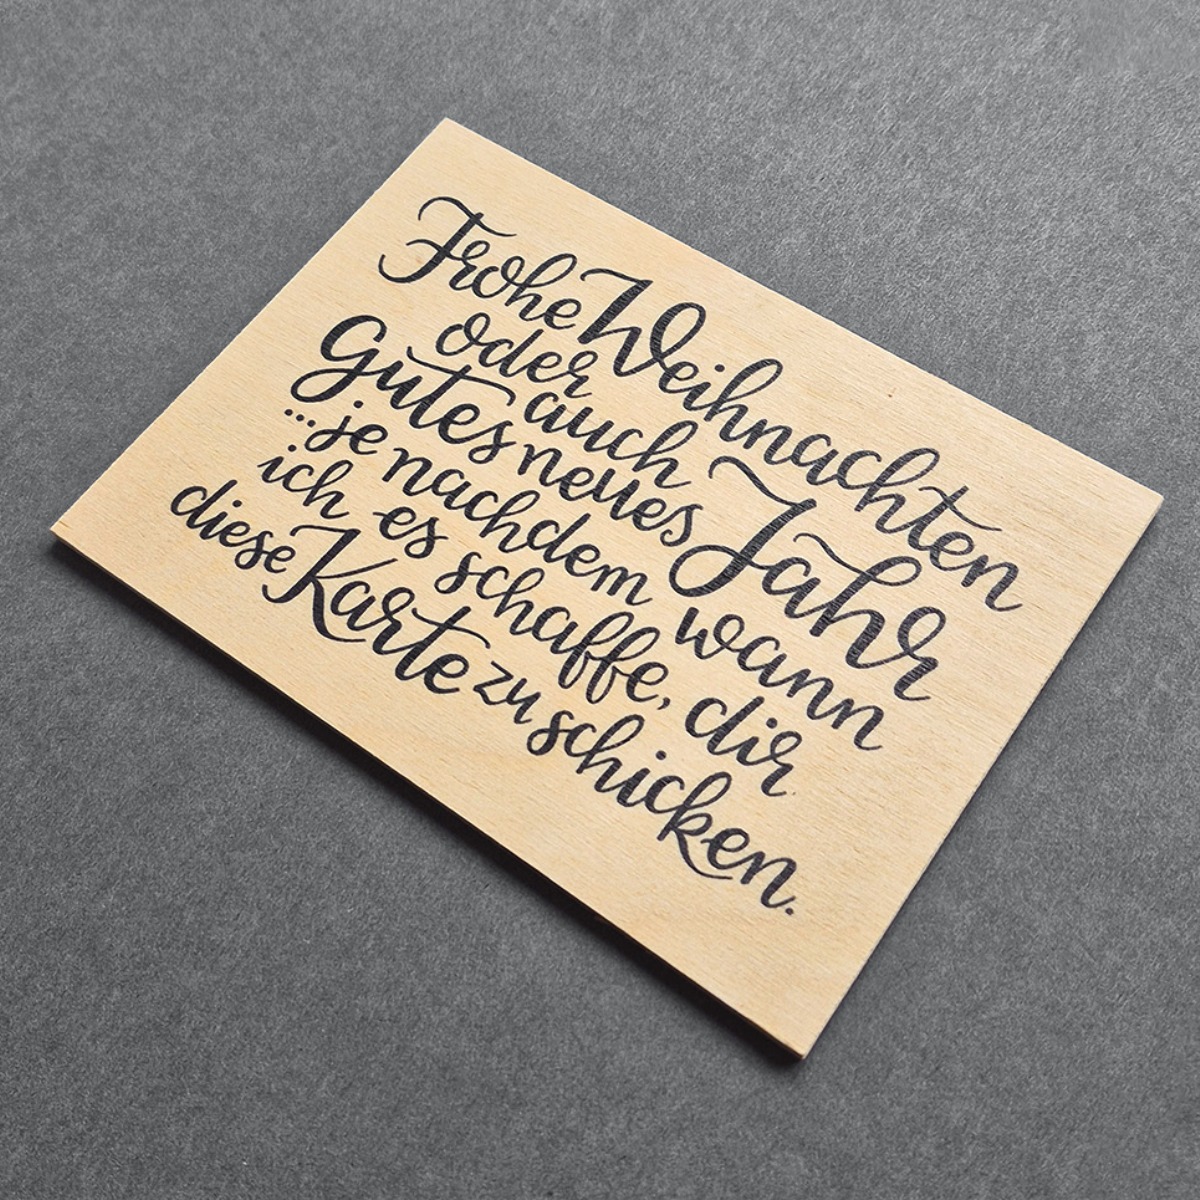 Frohe Weihnachten
oder auch
Gutes neues Jahr
...je nachdem wann
ich es schaffe, dir
diese Karte zu schicken.